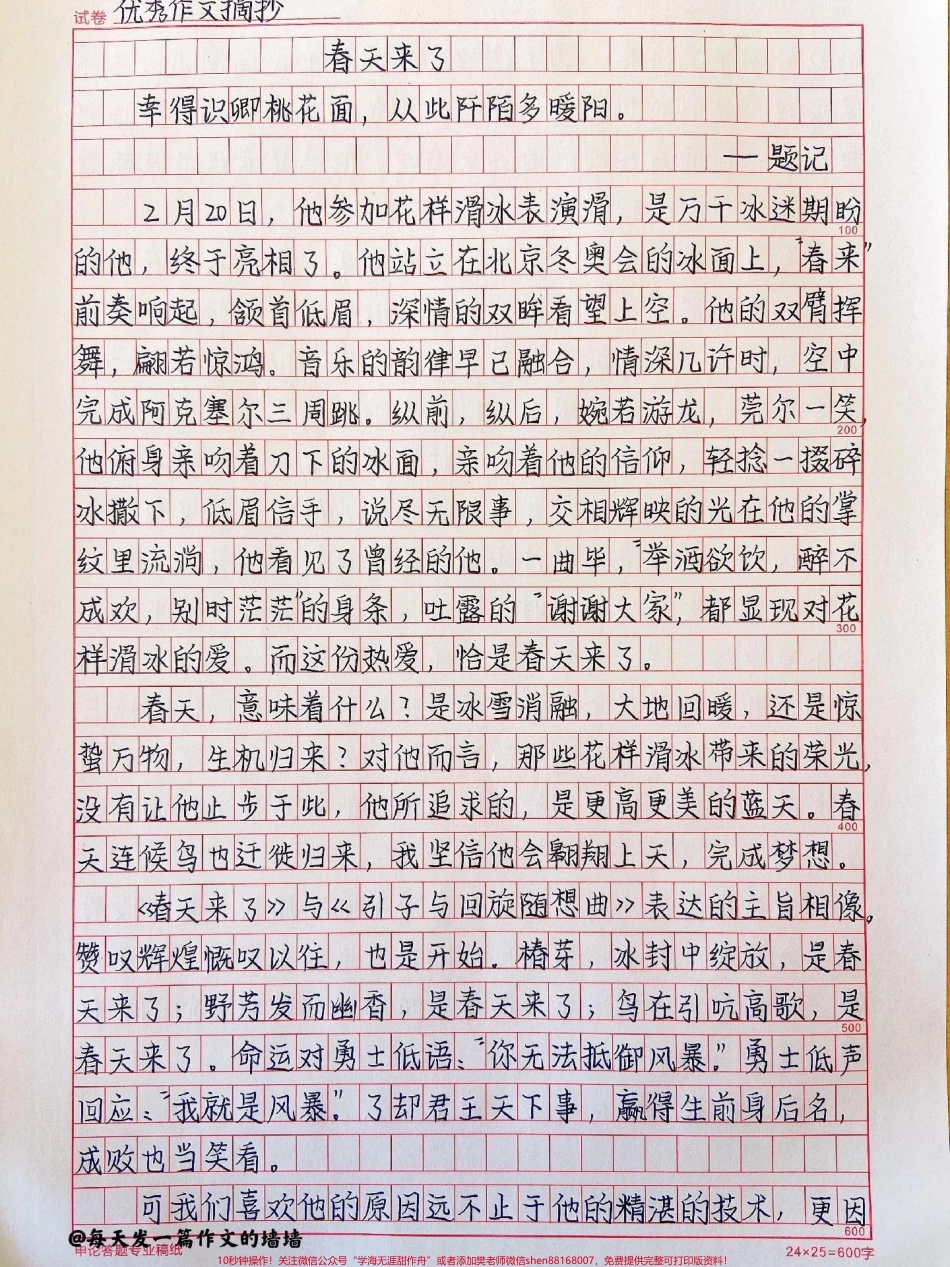 试卷 优秀作文摘抄
春天来了
幸得识卿桃花面，从此阡陌多暖阳。
— 题记
2月20日，他参加花样滑冰表演滑，是万千冰迷期盼
100
的他，终于亮相了。他站立在北京冬奥会的冰面上，“春来”
前奏响起，颔首低眉，深情的双眸看望上空。他的双臂挥
舞，翩若惊鸿。音乐的韵律早已融合，情深几许时，空中
完成阿克塞尔三周跳。纵前，纵后，婉若游龙，莞尔一笑，
200
他俯身亲吻着刀下的冰面，亲吻着他的信仰，轻捻一掇碎
冰撒下，低眉信手，说尽无限事，交相辉映的光在他的掌
纹里流淌，他看见了曾经的他。一曲毕，“举酒欲饮，醉不
成欢，别时茫茫”的身条，吐露的“谢谢大家”，都显现对花
300
样滑冰的爱。而这份热爱，恰是春天来了。
春天，意味着什么？是冰雪消融，大地回暖，还是惊
蛰万物，生机归来？对他而言，那些花样滑冰带来的荣光，
没有让他止步于此，他所追求的，是更高更美的蓝天。春
400
天连候鸟也迁徙归来，我坚信他会翱翔上天，完成梦想。
《春天来了》与《引子与回旋随想曲》表达的主旨相像，
赞叹辉煌慨叹以往，也是开始。椿芽，冰封中绽放，是春
天来了；野芳发而幽香，是春天来了；鸟在引吭高歌，是
500
春天来了。命运对勇士低语：“你无法抵御风暴。”勇士低声
回应：“我就是风暴”。了却君王天下事，赢得生前身后名，
成败也当笑看。
可我们喜欢他的原因远不止于他的精湛的技术，更因
600
@每天发一篇作文的墙墙
申论答题专业稿纸
24×25=600字
10秒钟操作！关注微信公众号“学海无涯甜作舟”或者添加樊老师微信shen88168007，免费提供完整可打印版资料！